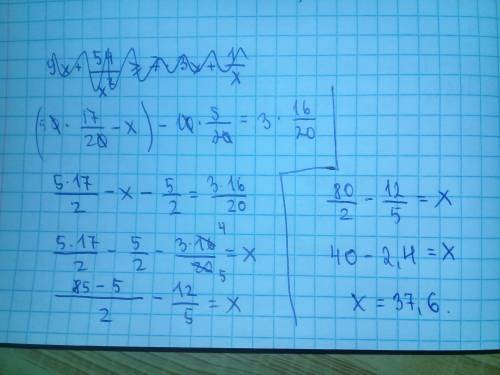 (50 · 17/20 − x) − 10 · 5/20 = 3 · 16/20
5·17/2 − x − 5/2 = 3·16/20
5·17/2 − 5/2 − 3·16 4/20 5 = x
85−5/2 − 12/5 = x
80/2 − 12/5 = x
40 − 2,4 = x
x = 37,6.